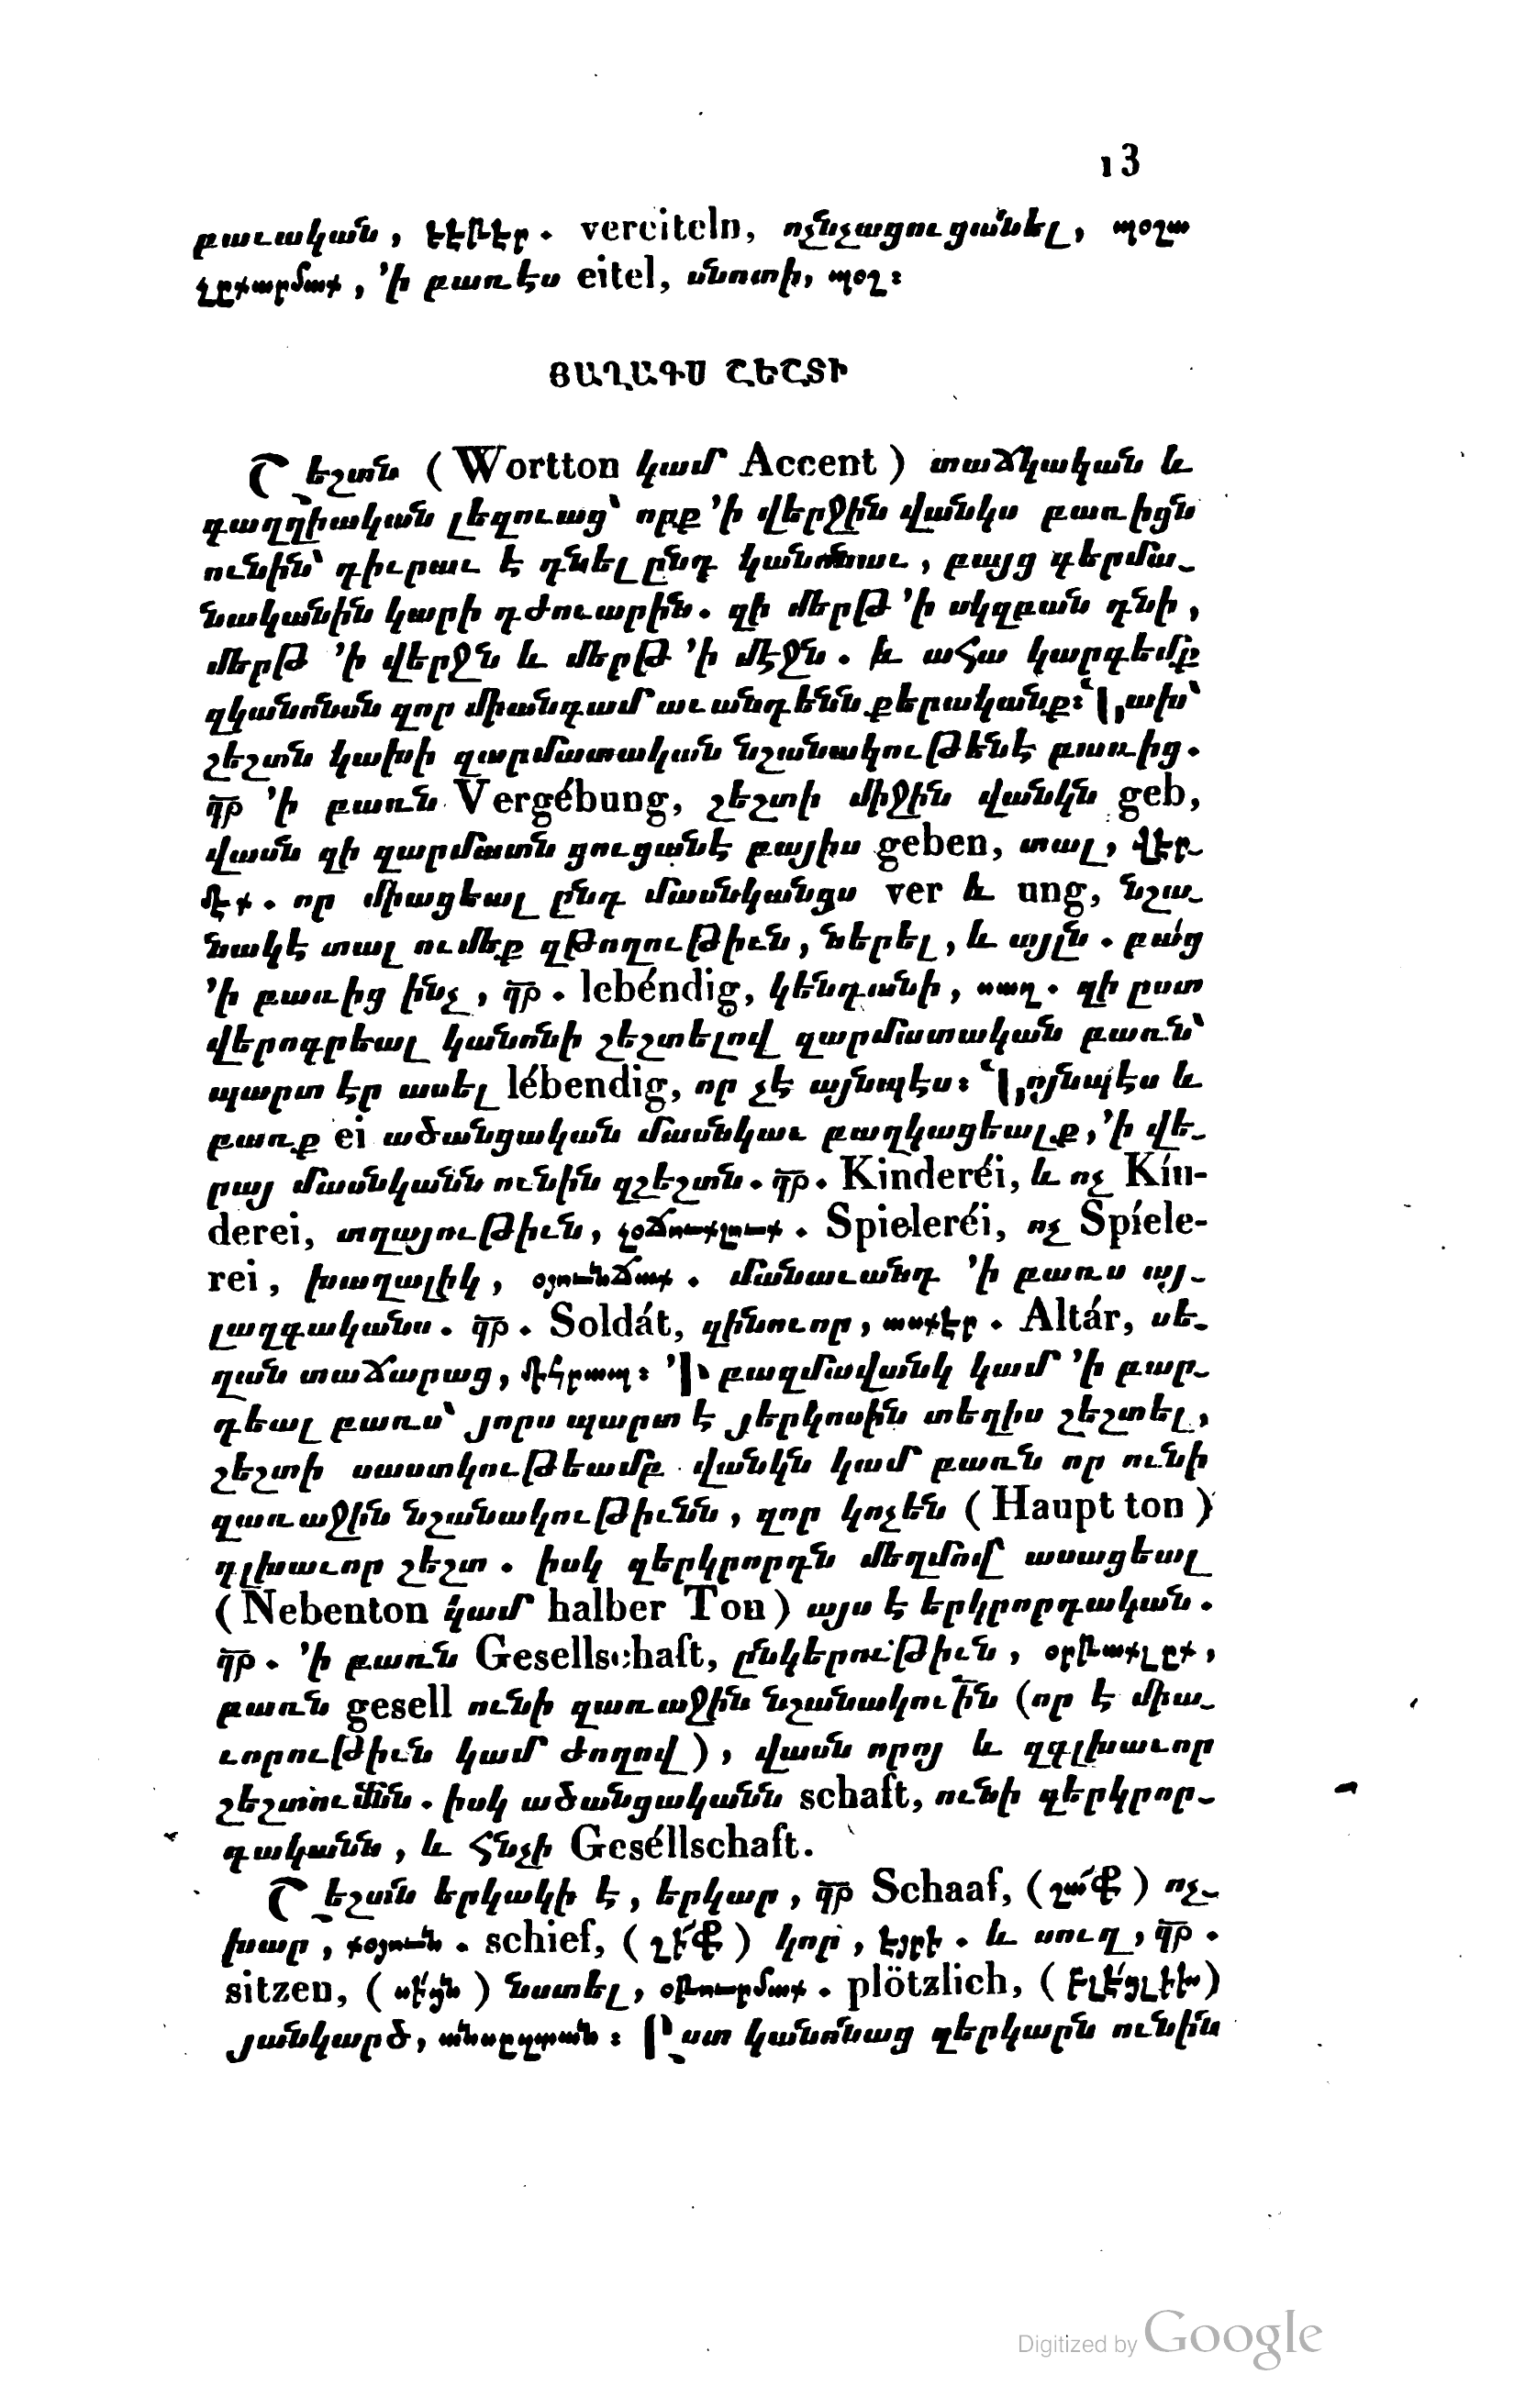 13
բաւական, եէթէր. vereiteln, ոչնչացուցանել, պօշա
չըխարմախ, ’ի բառէս eitel, սնոտի, պօշ։
ՅԱՂԱԳՍ ՇԵՇՏԻ
Շեշտն (Wortton կամ Accent) տաճկական և
գաղղիական լեզուաց՝ որք ’ի վերջին վանկս բառիցն
ունին՝ դիւրաւ է դնել ընդ կանոնաւ, բայց գերմա֊
նականին կարի դժուարին. զի մերթ ’ի սկզբան դնի,
մերթ ’ի վերջն և մերթ ’ի մէջն. և ահա կարգեմք
զկանոնսն զոր միանգամ աւանդենն քերականք։ Նախ՝
շեշտն կախի զարմատական նշանակութենէ բառից.
զօր ’ի բառն Vergébung, շեշտի միջին վանկն geb,
վասն զի զարմատն ցուցանէ բայիս geben, տալ, վէր֊
մէխ. որ միացեալ ընդ մասնկանցս ver և ung, նշա֊
նակէ տալ ումեք զթողութիւն, ներել, և այլն. բաց
’ի բառից ինչ, զօր. lebéndig, կենդանի, սաղ. զի ըստ
վերոգրեալ կանոնի շեշտելով զարմատական բառն՝
պարտ էր ասել lébendig, որ չէ այնպէս։ Նոյնպէս և
բառք ei ածանցական մասնկաւ բաղկացեալք, ’ի վե֊
րայ մասնկանն ունին զշեշտն. զօր. Kinderéi, և ոչ Kín-
derei, տղայութիւն, չօճուխլուխ. Spieleréi, ոչ Spíele-
rei, խաղալիկ, օյունճախ. մանաւանդ ’ի բառս այ֊
լազգականս. զօր. Soldát, զինուոր, ասխէր. Altár, սե֊
ղան տաճարաց, միհրապ։ ’Ի բազմավանկ կամ ’ի բար֊
դեալ բառս՝ յորս պարտ է յերկոսին տեղիս շեշտել,
շեշտի սաստկութեամբ վանկն կամ բառն որ ունի
զառաջին նշանակութիւնն, զոր կոչեն (Haupt ton)
գլխաւոր շեշտ. իսկ զերկրորդն մեղմով ասացեալ
(Nebenton կամ halber Ton) այս է երկրորդական.
զօր. ’ի բառն Gesellschaft, ընկերութիւն, օրթախլըխ,
բառն gesell ունի զառաջին նշանակուին (որ է միա֊
ւորութիւն կամ ժողով), վասն որոյ և զգլխաւոր
շեշտումնն. իսկ ածանցականն schaft, ունի զերկրոր֊
դականն, և հնչի Geséllschaft.
Շեշտն երկակի է, երկար, զօր Schaaf, (շաֆ) ոչ֊
խար, խօյուն. schief, (շիֆ) կոր, էյրի. և սուղ, զօր.
sitzen, (սիցն) նստել, օթուրմախ. plötzlich, (բլէցլիխ)
յանկարծ, անսըզտան։ Ըստ կանոնաց զերկարն ունին
Digitized by Google